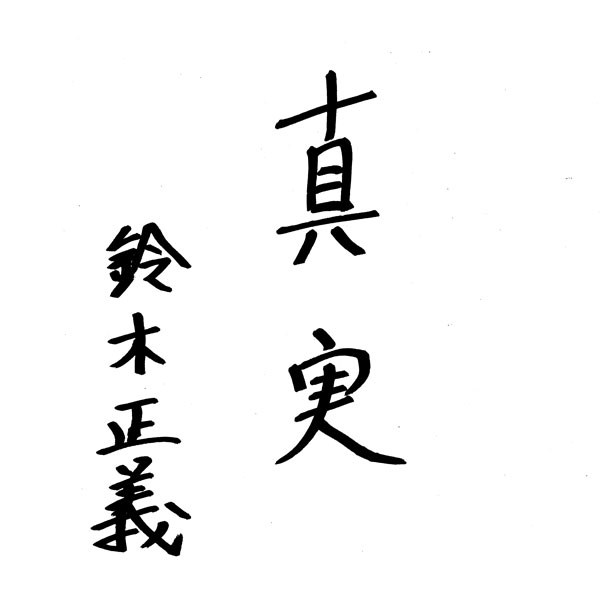 真実
鈴木正義